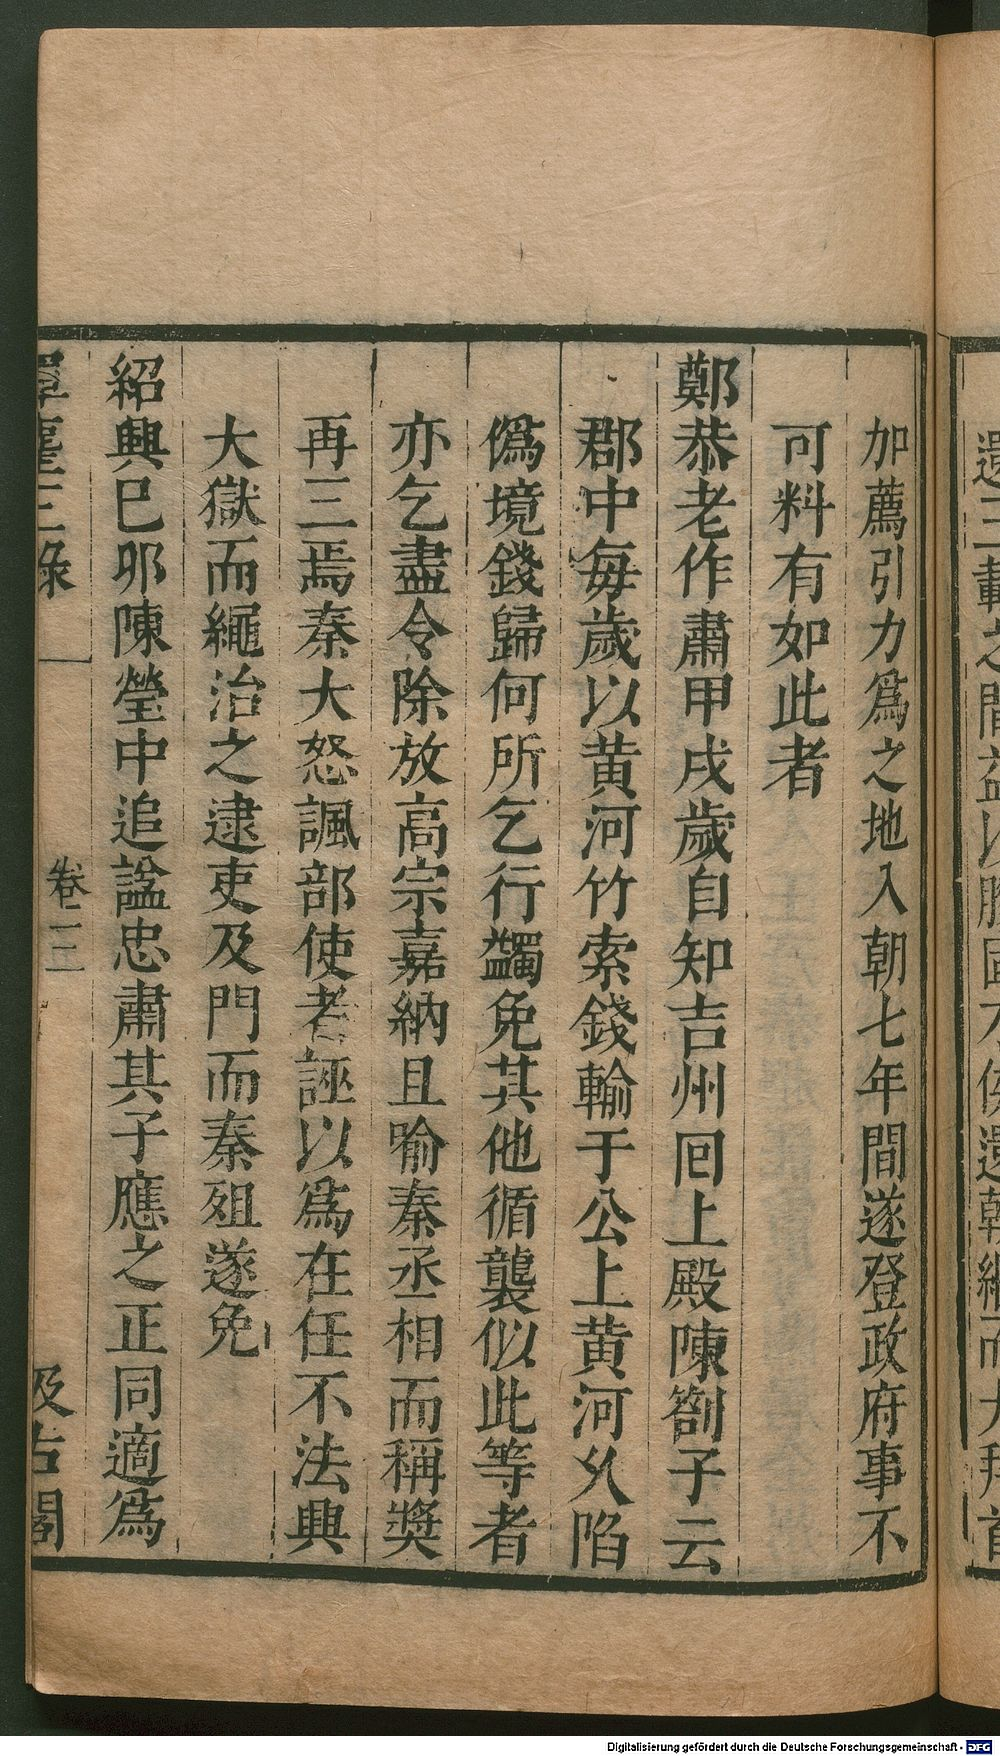 加薦引力爲之地入朝七年間遂登政府事不
可料有如此者
鄭恭老作肅甲戌歲自知吉州囘上殿陳劄子云
郡中每歲以黃河竹索錢輸于公上黃河久陷
僞境錢歸何所乞行蠲免其他循襲似此等者
亦乞盡令除放高宗嘉納且喻秦丞相而稱獎
再三焉秦大怒諷部使者誣以爲在任不法興
大獄而繩治之逮吏及門而秦殂遂免
紹興己卯陳瑩中追諡忠肅其子應之正同適爲
卷三
汲古閣
Digitalisierung gefördert durch die Deutsche Forschungsgemeinschaft - DFG